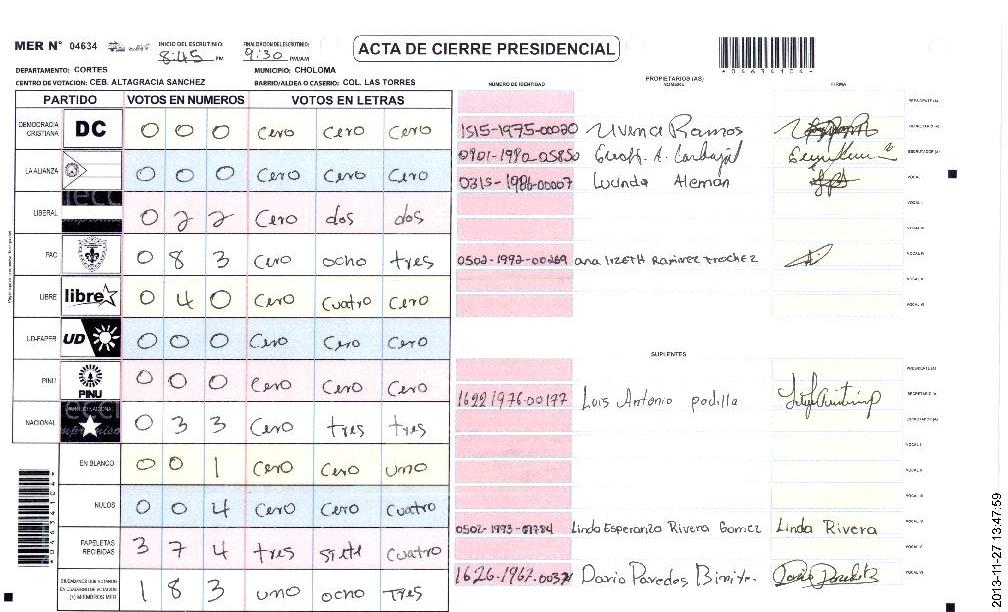 MER N° 04634
INICIO DEL ESCRUTINIO: 8:45 PM
FINALIZACION DEL ESCRUTINIO: 9:30 PM/AM
ACTA DE CIERRE PRESIDENCIAL
DEPARTAMENTO: CORTES
MUNICIPIO: CHOLOMA
CENTRO DE VOTACION: CEB. ALTAGRACIA SANCHEZ
BARRIO/ALDEA O CASERIO: COL. LAS TORRES
PARTIDO VOTOS EN NUMEROS VOTOS EN LETRAS
DEMOCRACIA CRISTIANA DC 0 0 0 Cero Cero Cero
LA ALIANZA 0 0 0 Cero Cero Cero
LIBERAL 0 2 2 Cero dos dos
PAC 0 8 3 Cero ocho tres
LIBRE libre 0 4 0 Cero Cuatro Cero
UD-FAPER UD 0 0 0 Cero Cero Cero
PINU PINU 0 0 0 Cero Cero Cero
NACIONAL 0 3 3 Cero tres tres
EN BLANCO 0 0 1 Cero Cero uno
NULOS 0 0 4 Cero Cero Cuatro
PAPELETAS RECIBIDAS 3 7 4 tres siete cuatro
CIUDADANOS QUE VOTARON EN CUADERNO DE VOTACION (+) MIEMBROS MER 1 8 3 uno ocho tres
PROPIETARIOS (AS)
NUMERO DE IDENTIDAD NOMBRE FIRMA
PRESIDENTE (A)
1515-1975-00020 Ramos SECRETARIO (A)
0901-1980-05850 ESCRUTADOR (A)
0315-1986-00007 Lucinda Aleman VOCAL I
VOCAL II
VOCAL III
0502-1992-00269 ana lizeth Ramirez trochez VOCAL IV
VOCAL V
VOCAL VI
SUPLENTES
PRESIDENTE (A)
1622 1976-00177 Luis Antonio padilla SECRETARIO (A)
ESCRUTADOR (A)
VOCAL I
VOCAL II
VOCAL III
0502-1993- Linda Esperanza Rivera Gomez Linda Rivera VOCAL IV
VOCAL V
1626-1962- Dario Paredes VOCAL VI
2013-11-27 13:47:59